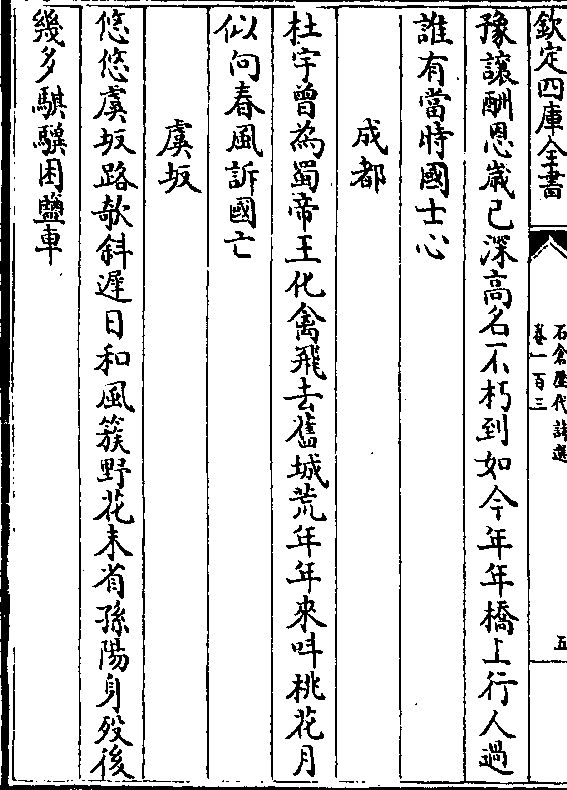 欽定四庫全書
石倉歷代詩選
卷一百三
五
豫讓酬恩歲已深高名不朽到如今年年橋上行人過
誰有當時國士心
成都
杜宇曾為蜀帝王化禽飛去舊城荒年年來叫桃花月
似向春風訴國亡
虞坂
悠悠虞坂路欹斜遲日和風簇野花未省孫陽身歿後
幾多騏驥困鹽車